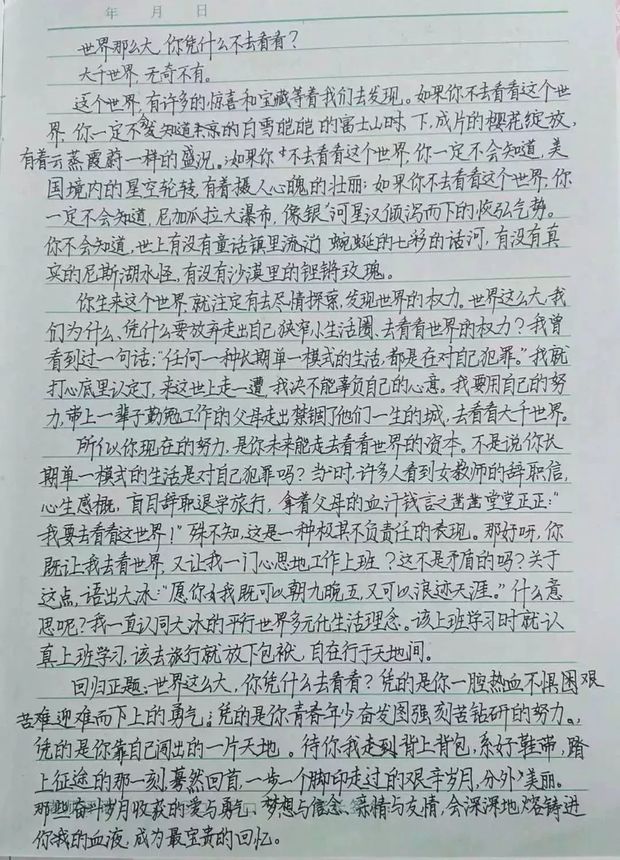 年 月 日
世界那么大,你凭什么不去看看?
大千世界,无奇不有。
这个世界,有许多的惊喜和宝藏等着我们去发现。如果你不去看看这个世
界,你一定不会知道东京的白雪皑皑的富士山时下,成片的樱花绽放,
有着云蒸霞蔚一样的盛况。如果你不去看看这个世界,你一定不会知道,美
国境内的星空轮转,有着摄人心魄的壮丽;如果你不去看看这个世界,你
一定不会知道,尼加瓜拉大瀑布,像银河星汉倾泻而下的恢弘气势。
你不会知道,世上有没有童话镇里流淌 蜿蜒的七彩的话河,有没有真
实的尼斯湖水怪,有没有沙漠里的铿锵玫瑰。
你生来这个世界,就注定有去尽情探索,发现世界的权力。世界这么大,我
们为什么、凭什么要放弃走出自己狭窄小生活圈、去看看世界的权力?我曾
看到过一句话:“任何一种长期单一模式的生活,都是在对自己犯罪。”我就
打心底里认定了,来这世上走一遭,我决不能辜负自己的心意。我要用自己的努
力,带上一辈子勤勉工作的父母走出禁锢了他们一生的城,去看看大千世界。
所以你现在的努力,是你未来能走去看看世界的资本。不是说你长
期单一模式的生活是对自己犯罪吗?当时,许多人看到女教师的辞职信,
心生感慨,盲目辞职退学旅行,拿着父母的血汗钱言之凿凿堂堂正正:“
我要去看看这世界!”殊不知,这是一种极其不负责任的表现。那好呀,你
既让我去看世界,又让我一门心思地工作上班?这不是矛盾的吗?关于
这点,语出大冰:“愿你我既可以朝九晚五,又可以浪迹天涯。”什么意
思呢?我一直认同大冰的平行世界多元化生活理念。该上班学习时就认
真上班学习,该去旅行就放下包袱,自在行于天地间。
回归正题:世界这么大,你凭什么去看看?凭的是你一腔热血不惧困艰
苦难迎难而下上的勇气;凭的是你青春年少奋发图强刻苦钻研的努力。,
凭的是你靠自己闯出的一片天地。待你我走到背上背包,系好鞋带,踏
上征途的那一刻,蓦然回首,一步一个脚印走过的艰辛岁月,分外美丽。
那些奋斗岁月收获的爱与勇气,梦想与信念、亲情与友情,会深深地熔铸进
你我的血液,成为最宝贵的回忆。